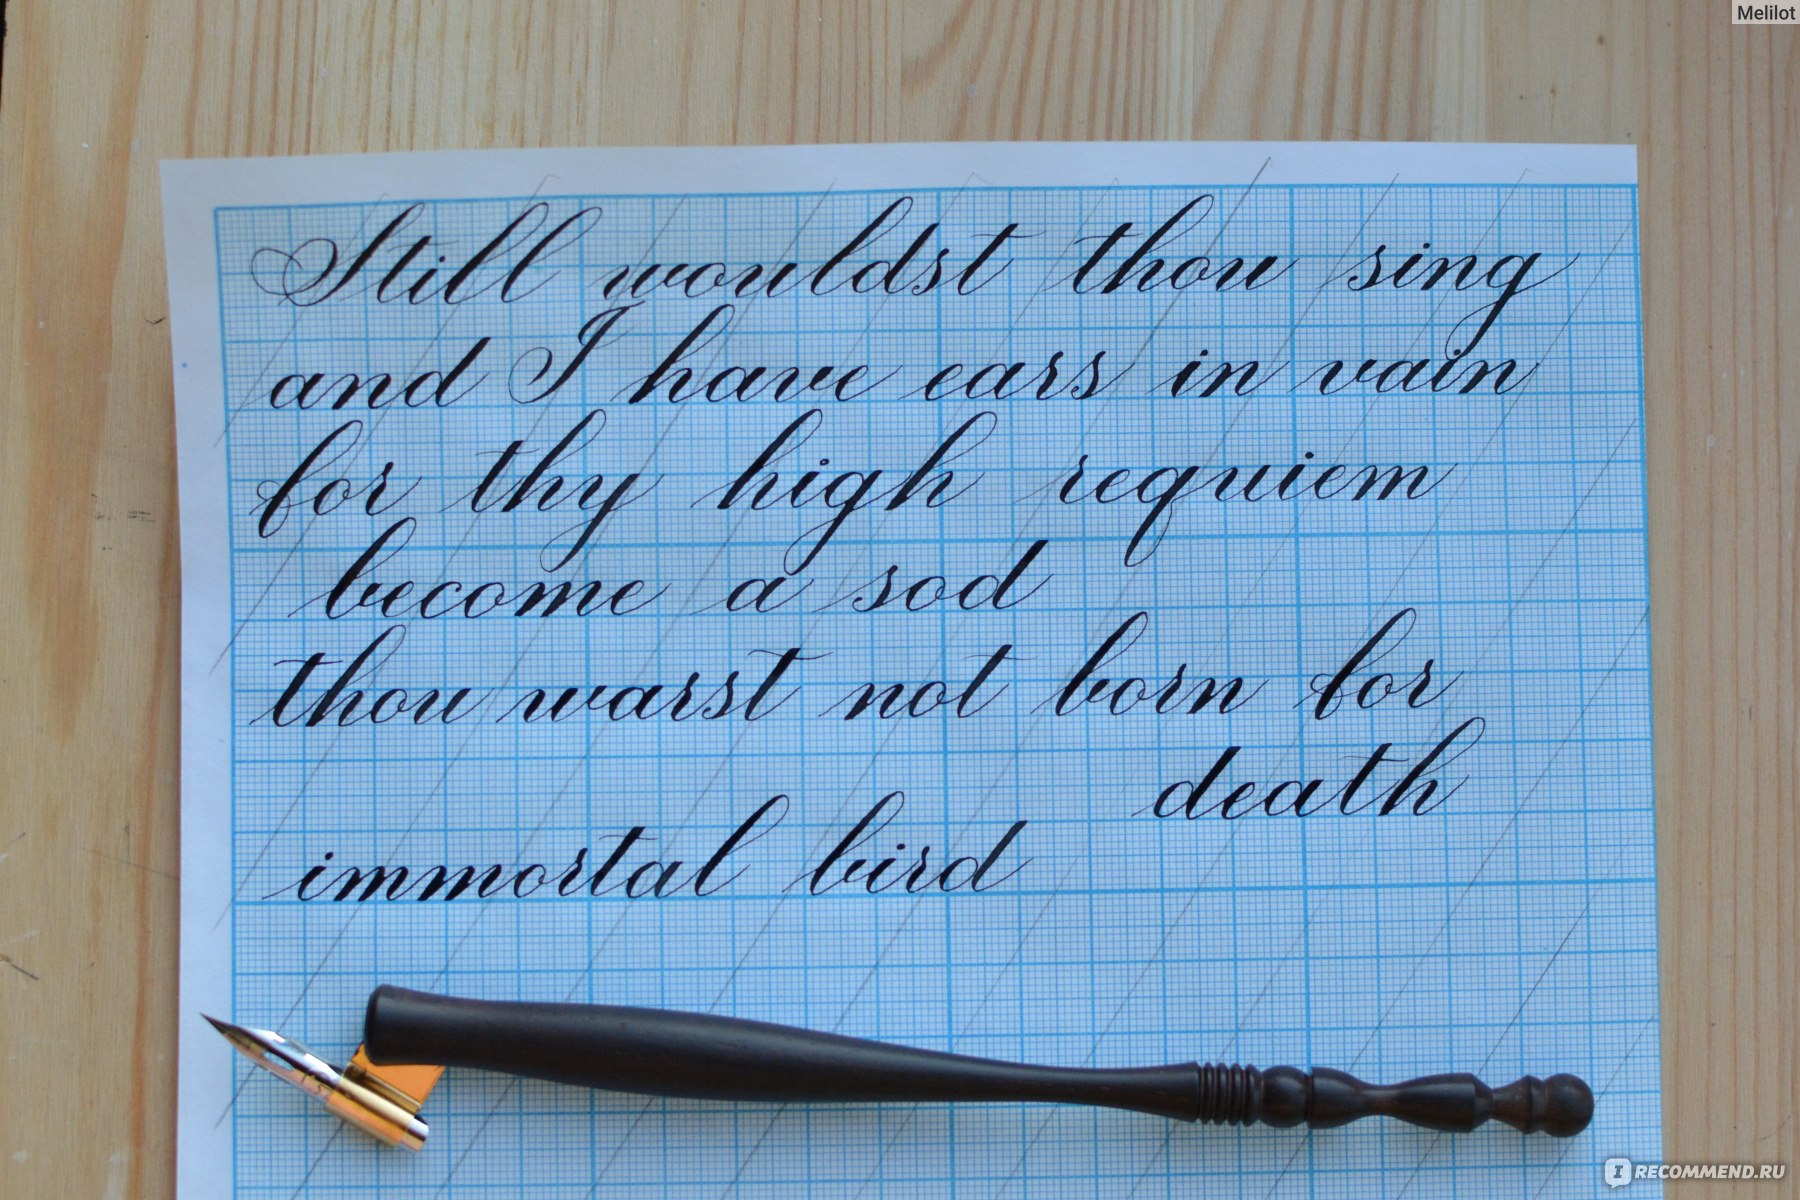 Melilot
Still wouldst thou sing
and I have ears in vain
for thy high requiem
become a sod
thou warst not born for
death
immortal bird
RECOMMEND.RU